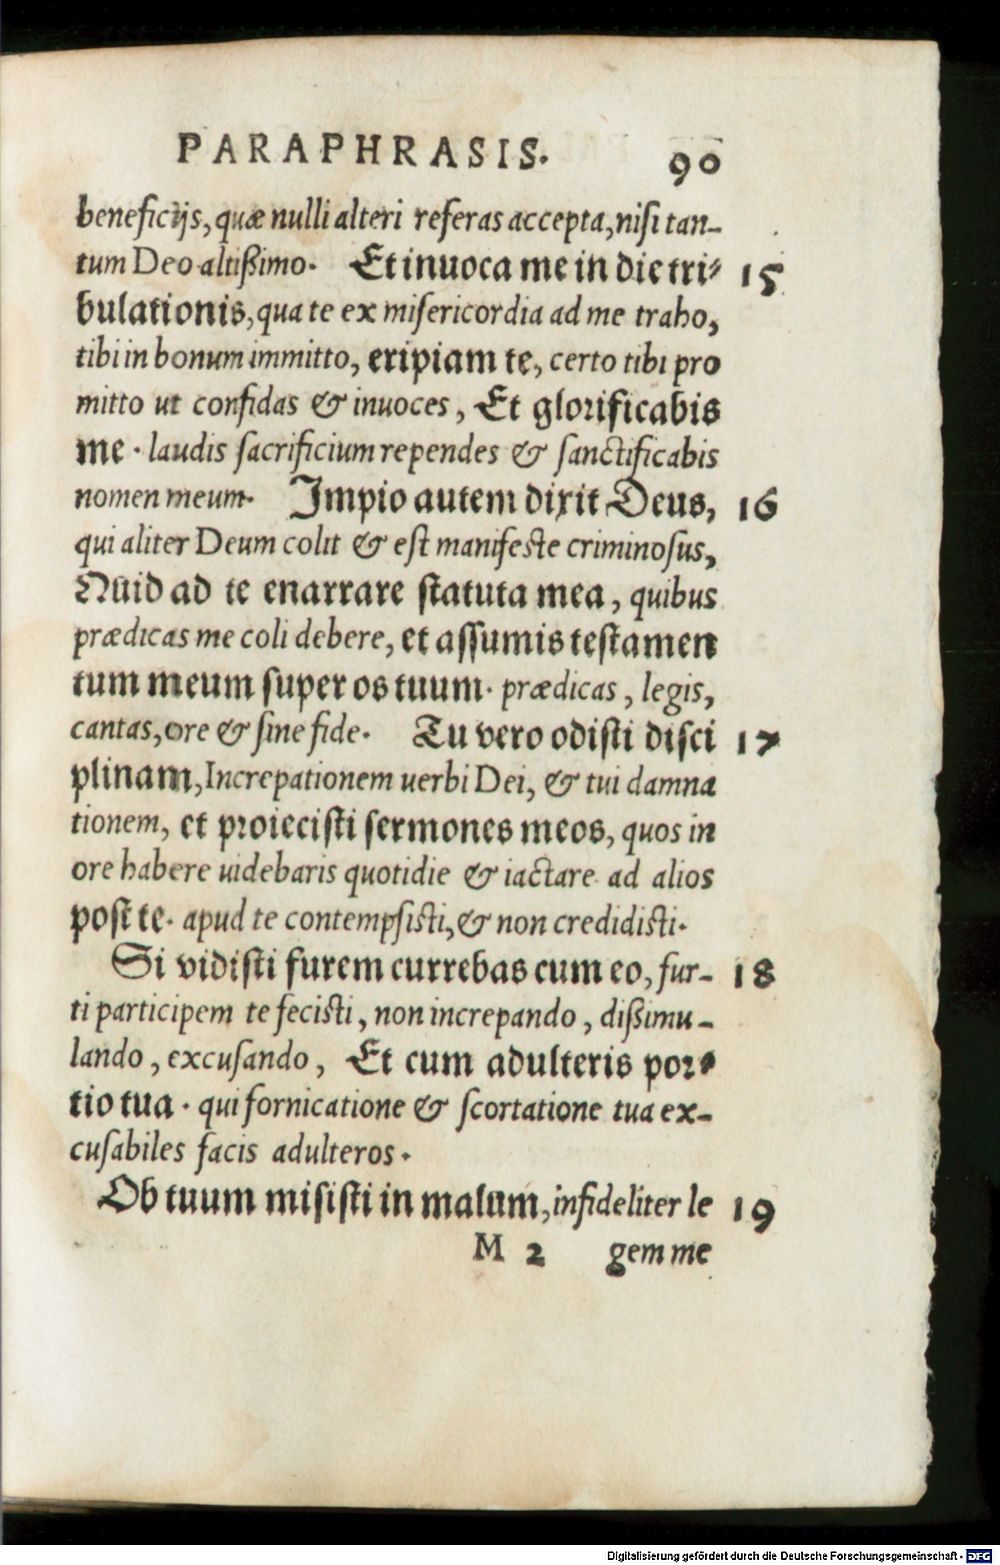 PARAPHRASIS. 90
beneficijs, quæ nulli alteri referas accepta, nisi tan-
tum Deo altißimo. Et inuoca me in die tri- 15
bulationis, qua te ex misericordia ad me traho,
tibi in bonum immitto, eripiam te, certo tibi pro
mitto ut confidas & inuoces, Et glorificabis
me. laudis sacrificium rependes & sanctificabis
nomen meum. Impio autem dixit Deus, 16
qui aliter Deum colit & est manifeste criminosus,
Quid ad te enarrare statuta mea, quibus
prædicas me coli debere, et assumis testamen
tum meum super os tuum. prædicas, legis,
cantas, ore & sine fide. Tu vero odisti disci 17
plinam, Increpationem uerbi Dei, & tui damna
tionem, et proiecisti sermones meos, quos in
ore habere uidebaris quotidie & iactare ad alios
post te. apud te contempsisti, & non credidisti.
Si vidisti furem currebas cum eo, fur- 18
ti participem te fecisti, non increpando, dißimu-
lando, excusando, Et cum adulteris por-
tio tua. qui fornicatione & scortatione tua ex-
cusabiles facis adulteros.
Ob tuum misisti in malum, infideliter le 19
M 2 gem me
Digitalisierung gefördert durch die Deutsche Forschungsgemeinschaft - DFG